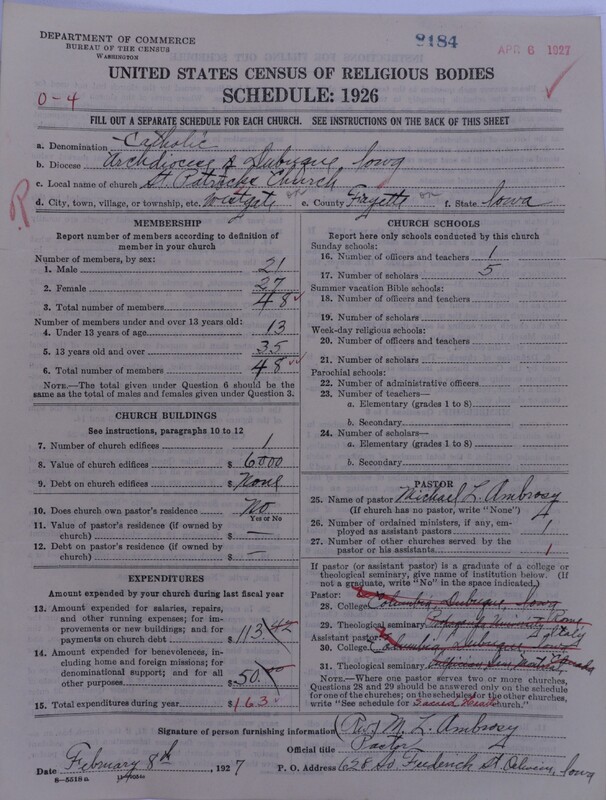 DEPARTMENT OF COMMERCE
BUREAU OF THE CENSUS
WASHINGTON
9184
APR 6 1927
UNITED STATES CENSUS OF RELIGIOUS BODIES
SCHEDULE: 1926
0-4
FILL OUT A SEPARATE SCHEDULE FOR EACH CHURCH. SEE INSTRUCTIONS ON THE BACK OF THIS SHEET
a. Denomination Catholic
b. Diocese Archdiocese of Dubuque, Iowa
c. Local name of church St. Patricks Church
d. City, town, village, or township, etc. Westgate e. County Fayette f. State Iowa
R
MEMBERSHIP
Report number of members according to definition of member in your church
Number of members, by sex:
1. Male 21
2. Female 27
3. Total number of members 48
Number of members under and over 13 years old:
4. Under 13 years of age 13
5. 13 years old and over 35
6. Total number of members 48
NOTE.—The total given under Question 6 should be the
same as the total of males and females given under Question 3.
CHURCH BUILDINGS
See instructions, paragraphs 10 to 12
7. Number of church edifices 1
8. Value of church edifices $ 6000
9. Debt on church edifices $ None
10. Does church own pastor's residence No
Yes or No
11. Value of pastor's residence (if owned by
church) $ —
12. Debt on pastor's residence (if owned by
church) $ —
EXPENDITURES
Amount expended by your church during last fiscal year
13. Amount expended for salaries, repairs,
and other running expenses; for im-
provements or new buildings; and for
payments on church debt $ 113.42
14. Amount expended for benevolences,
including home and foreign missions; for
denominational support; and for all
other purposes $ 50.00
15. Total expenditures during year $ 163
CHURCH SCHOOLS
Report here only schools conducted by this church
Sunday schools:
16. Number of officers and teachers 1
17. Number of scholars 5
Summer vacation Bible schools:
18. Number of officers and teachers
19. Number of scholars
Week-day religious schools:
20. Number of officers and teachers
21. Number of scholars
Parochial schools:
22. Number of administrative officers
23. Number of teachers—
a. Elementary (grades 1 to 8)
b. Secondary
24. Number of scholars—
a. Elementary (grades 1 to 8)
b. Secondary
PASTOR
25. Name of pastor Michael L. Ambrosy
(If church has no pastor, write "None")
26. Number of ordained ministers, if any, em-
ployed as assistant pastors 1
27. Number of other churches served by the
pastor or his assistants 1
If pastor (or assistant pastor) is a graduate of a college or
theological seminary, give name of institution below. (If
not a graduate, write "No" in the space indicated.)
Pastor:
28. College Columbia Dubuque, Iowa
29. Theological seminary Rome Italy
Assistant pastor:
30. College Columbia, Dubuque
31. Theological seminary
NOTE.—Where one pastor serves two or more churches,
Questions 28 and 29 should be answered only on the schedule
for one of the churches; on the schedules for the other churches,
write "See schedule for Sacred Heart church."
Signature of person furnishing information (Rev.) M. L. Ambrosy
Official title Pastor
Date February 8th, 1927 P. O. Address 628 So. Frederick St. Oelwein, Iowa
8—5518a